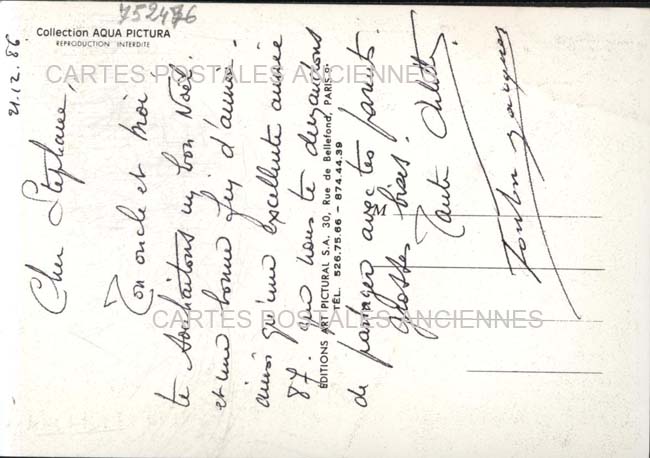 752476
Collection AQUA PICTURA
REPRODUCTION INTERDITE
CARTES POSTALES ANCIENNES
21.12.86
Cher Stephane,
Ton oncle et moi
te souhaitons un bon Noël
et une bonne fin d'année
ainsi qu'une excellente année
87. que nous te demandons
de partager avec tes parents.
grosses bises.
Tante Arlette
Tonton Jacques
EDITIONS ART PICTURAL S.A. 30, Rue de Bellefond, PARIS-9
TÉL. 526.75.66 - 874.44.39
M
CARTES POSTALES ANCIENNES